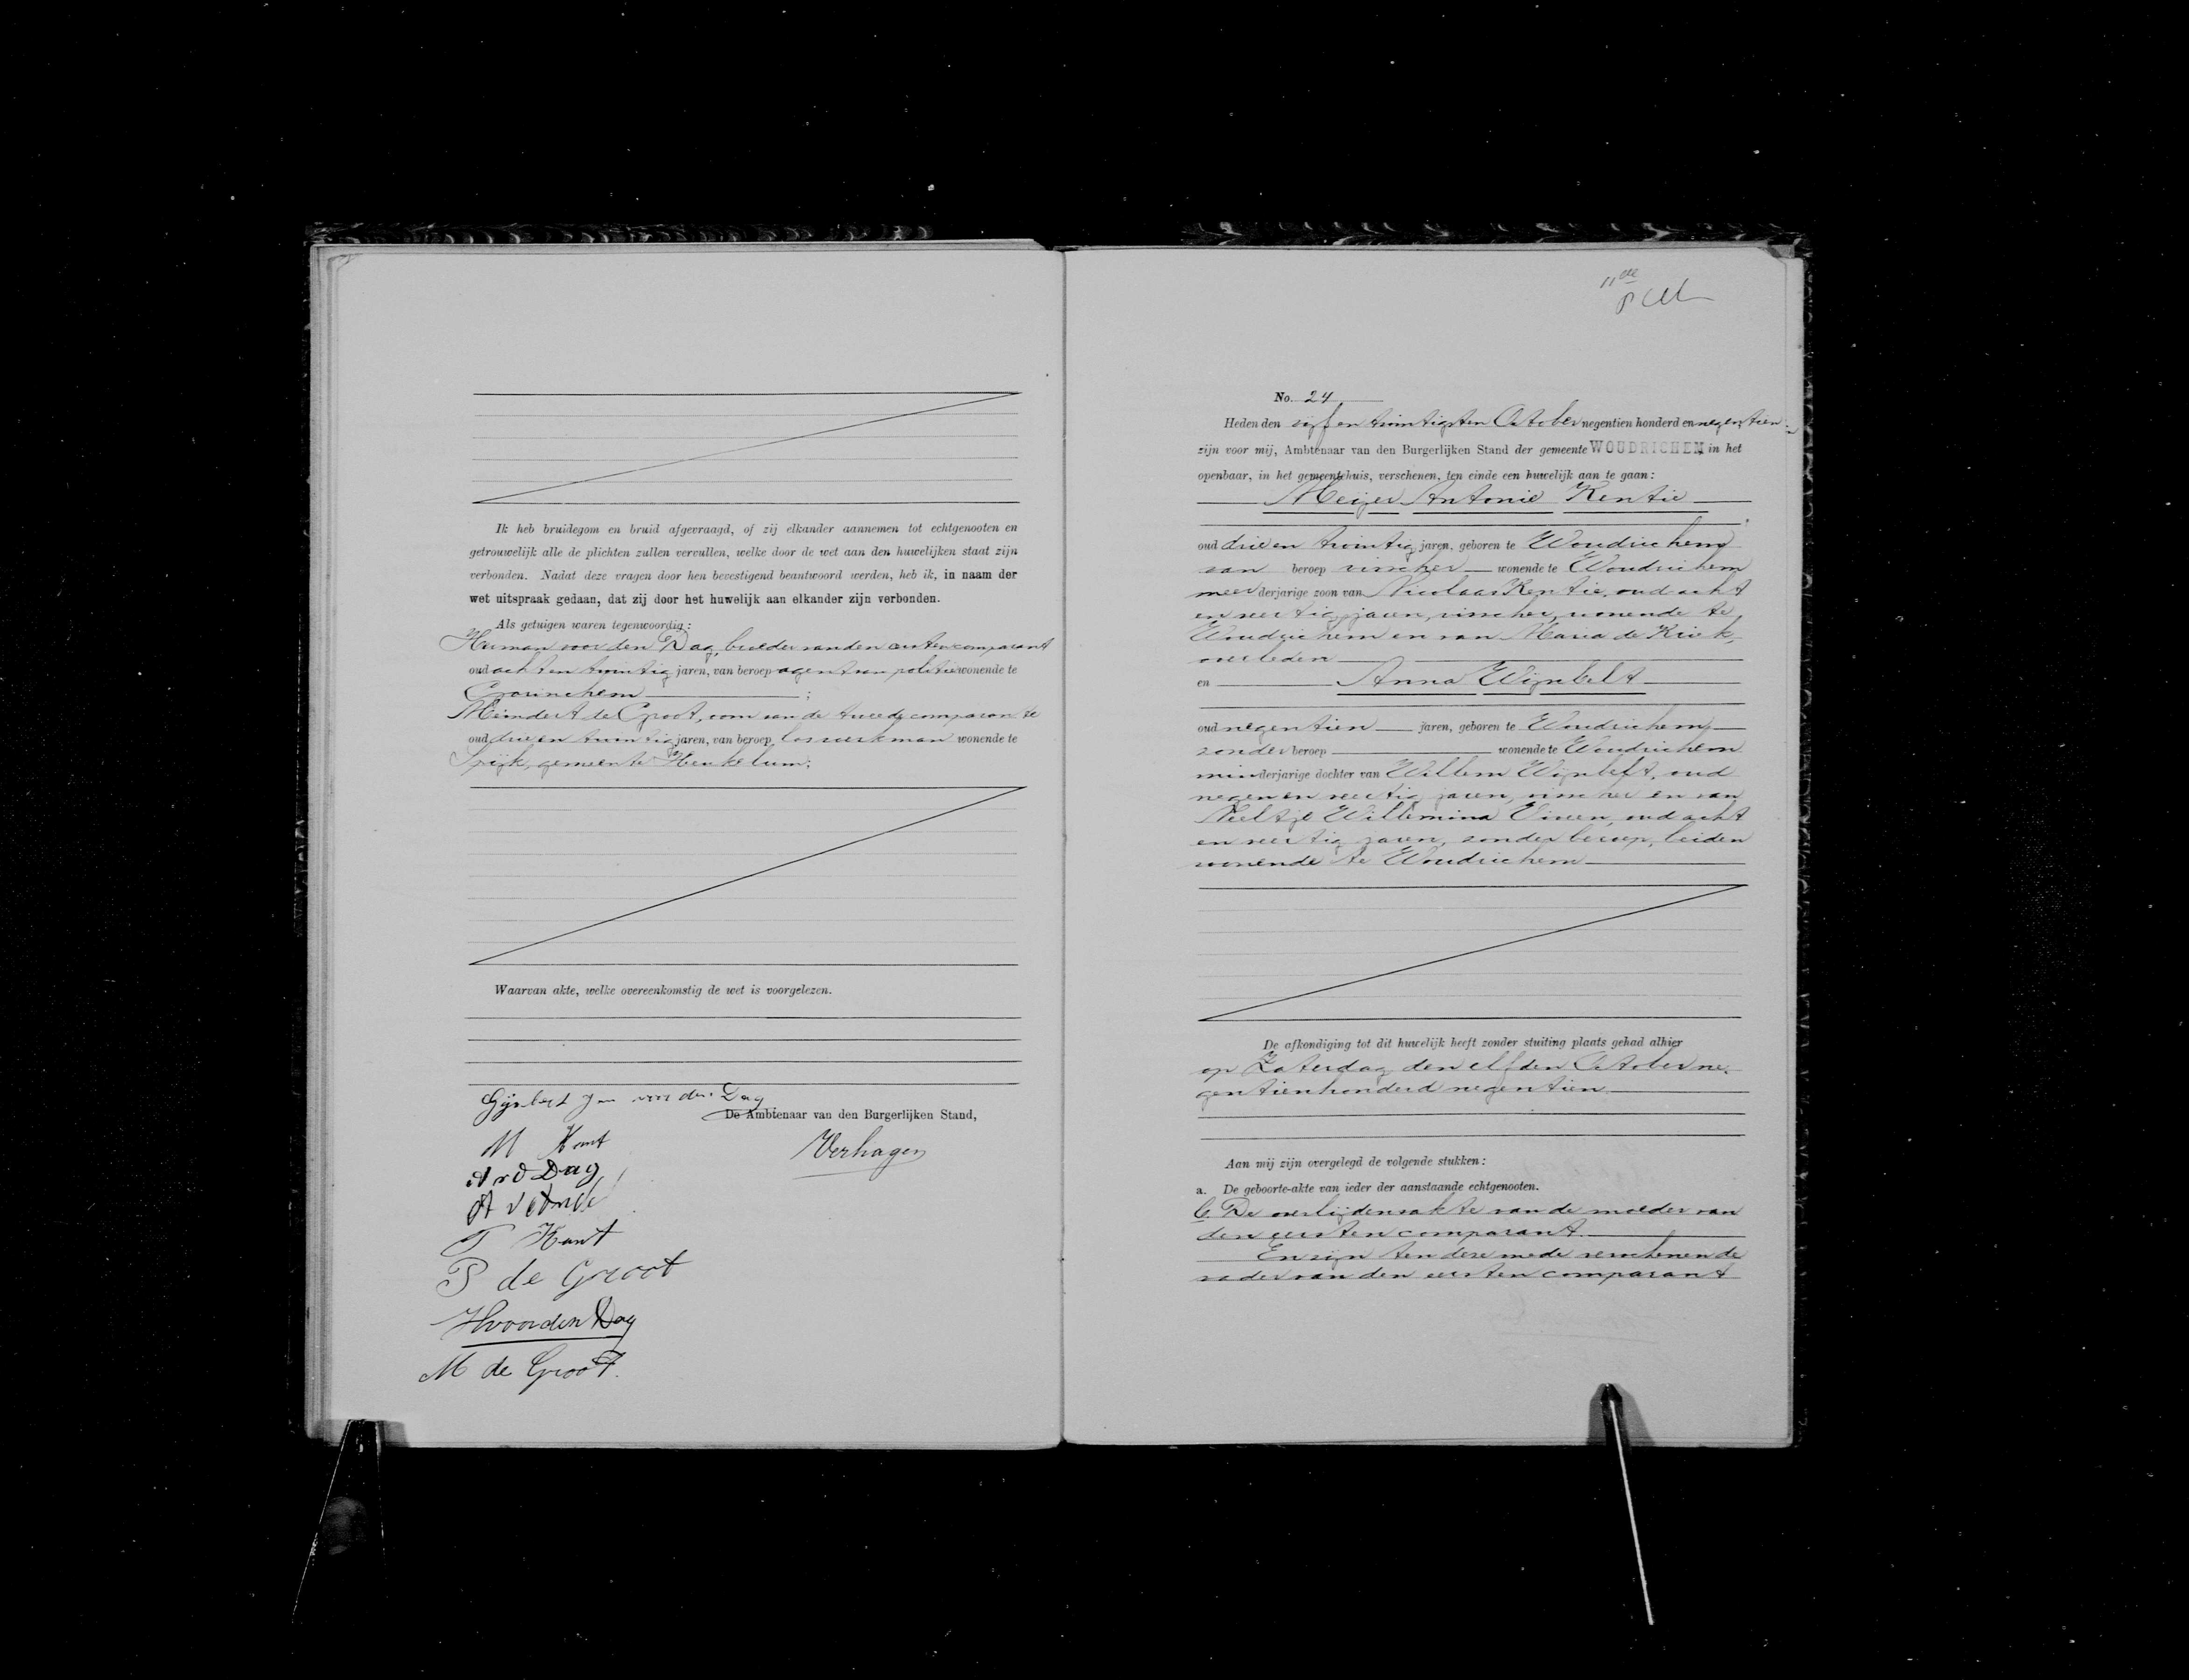 Ik heb bruidegom en bruid afgevraagd, of zij elkander aannemen tot echtgenooten en
getrouwelijk alle de plichten zullen vervullen, welke door de wet aan den huwelijken staat zijn
verbonden. Nadat deze vragen door hen bevestigend beantwoord werden, heb ik, in naam der
wet uitspraak gedaan, dat zij door het huwelijk aan elkander zijn verbonden.
Als getuigen waren tegenwoordig:
Herman voor den Dag, broeder van den eersten comparant
oud acht en twintig jaren, van beroep agent van politie wonende te
Gorinchem ;
Meindert de Groot, oom van de tweede comparante
oud drie en twintig jaren, van beroep los werkman wonende te
Spijk, gemeente Heukelum;
Waarvan akte, welke overeenkomstig de wet is voorgelezen.
Gijsbert Jan voor den Dag
De Ambtenaar van den Burgerlijken Stand,
M Kant
Verhagen
A v d Dag
T Kant
P de Groot
H voor den Dag
M de Groot.
11de
No. 24
Heden den vijf en twintigsten October negentien honderd en negentien
zijn voor mij, Ambtenaar van den Burgerlijken Stand der gemeente WOUDRICHEM, in het
openbaar, in het gemeentehuis, verschenen, ten einde een huwelijk aan te gaan:
Meijer Antonie Kentie
oud drie en twintig jaren, geboren te Woudrichem
van beroep visscher wonende te Woudrichem
meerderjarige zoon van Nicolaas Kentie, oud acht
en veertig jaren, visscher, wonende te
Woudrichem en van Maria de Kriek,
overleden
en Anna Wijnbelt
oud negentien jaren, geboren te Woudrichem
zonder beroep wonende te Woudrichem
minderjarige dochter van Willem Wijnbelt, oud
negen en veertig jaren, visscher en van
Neeltje Willemina Viveen, oud acht
en veertig jaren, zonder beroep, beiden
wonende te Woudrichem
De afkondiging tot dit huwelijk heeft zonder stuiting plaats gehad alhier
op Zaterdag den elfden October ne-
gentienhonderd negentien
Aan mij zijn overgelegd de volgende stukken:
a. De geboorte-akte van ieder der aanstaande echtgenooten.
b. De overlijdensakte van de moeder van
den eersten comparant.
En zijn ten deze mede verschenen de
vader van den eersten comparant